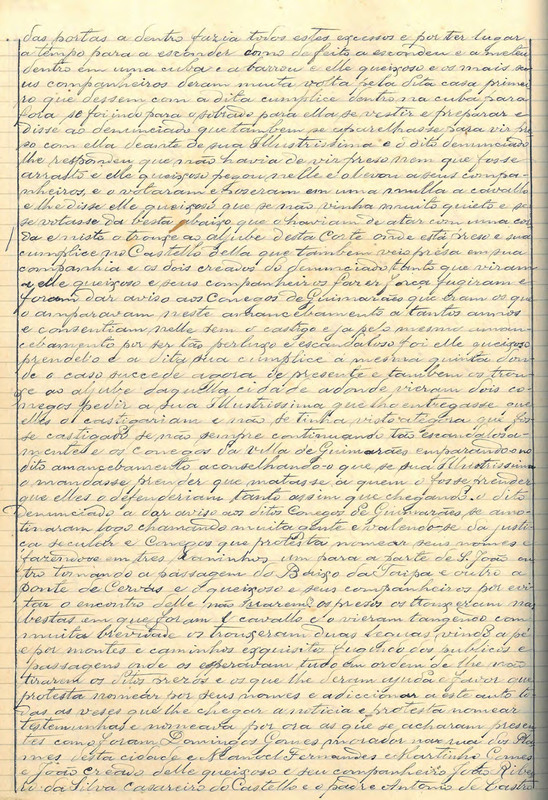 das portas a dentro fazia todos estes excessos e por ter lugar
a tempo para a esconder como de feito a escondeu e a meteu
dentro em uma cuba e a barrou e elle queixoso e os mais se
us companheiros deram muita volta pela dita casa primei
ro que dessem com a dita cumplice dentro na cuba para
fora se foi indo para o sobrado para ella se vestir e preparar e
disse ao denunciado que tambem se aparelhasse para vir pre
so com ella deante de sua Illustrissima e o dito denunciado
lhe respondeu que não havia de vir preso nem que fosse
arrasto e elle queixoso pegou nelle e o levou a seus compa
nheiros, e o votaram e poseram em uma mulla a cavallo
e lhe disse elle queixoso que se não vinha muito quieto e se
se votasse da besta abaixo que o haviam de atar com uma cor
da e nisto o trouxe ao aljube desta Corte onde está preso e sua
cumplice no Castello della que tambem veis présa em sua
companhia e os dois creados do denunciado tanto que viram
a elle queixoso e seus companheiros fazer força fugiram e
foram dar aviso aos Conegos de Guimarães que eram os que
o amparavam neste amancebamento a tantos annos
e consentiam nelle sem o castigo e já pelo mesmo aman
cebamento por ser tão perlongo e escandaloso foi elle queixoso
prendel-o e a dita sua cumplice á mesma quinta don
de o caso succede agora de presente e tambem os trou
xe ao aljube daquella cidade adonde vieram dois co
negos pedir a sua Illustrissima que lho entregasse que
elles o castigariam e não se tinha visto atégora que fos
se castigado se não sempre continuando tão escandalosa
mente e os Conegos da villa de Guimarães emparando-o no
dito amancebamento aconselhando-o que se sua Illustrissima
o mandasse prender que matasse a quem o fosse prender
que elles o defenderiam tanto assim que chegando o dito
denunciado a dar aviso aos ditos Conegos de Guimarães se amo
tinaram logo chamando muita gente e valendo-se da justi
ça secular e Conegos que protesta nomear seus nomes e
fazendo-se em tres caminhos um para a parte de S. João ou
tro tomando a passagem do Barço da Taipa e outro a
ponte de Cervas e o queixoso e seus companheiros por evi
tar o encontro delle não tirarem os presos os trouxeram nas
bestas em que foram a cavallo e o vieram tangendo com
muita brevidade os trouxeram duas leguas vindo a pé
e por montes e caminhos exquisitos fugindo dos publicos e
passagens onde os esperavam tudo em ordem de lhe não
tirarem os ditos prezos e os que lhe deram ajuda e favor que
protesta nomear por seus nomes e addiccionar a este auto to
das as veses que lhe chegar a noticia e protesta nomear
testemunhas e nomeava por ora as que se acharam presen
tes como foram Domingos Gomes morador na rua dos Pla
mes desta cidade e Manoel Fernandes e Martinho Gomes
e João creado delle queixoso e seu companheiro João Ribei
ro da Silva Casareiro do Castello e o padre Antonio de Castro